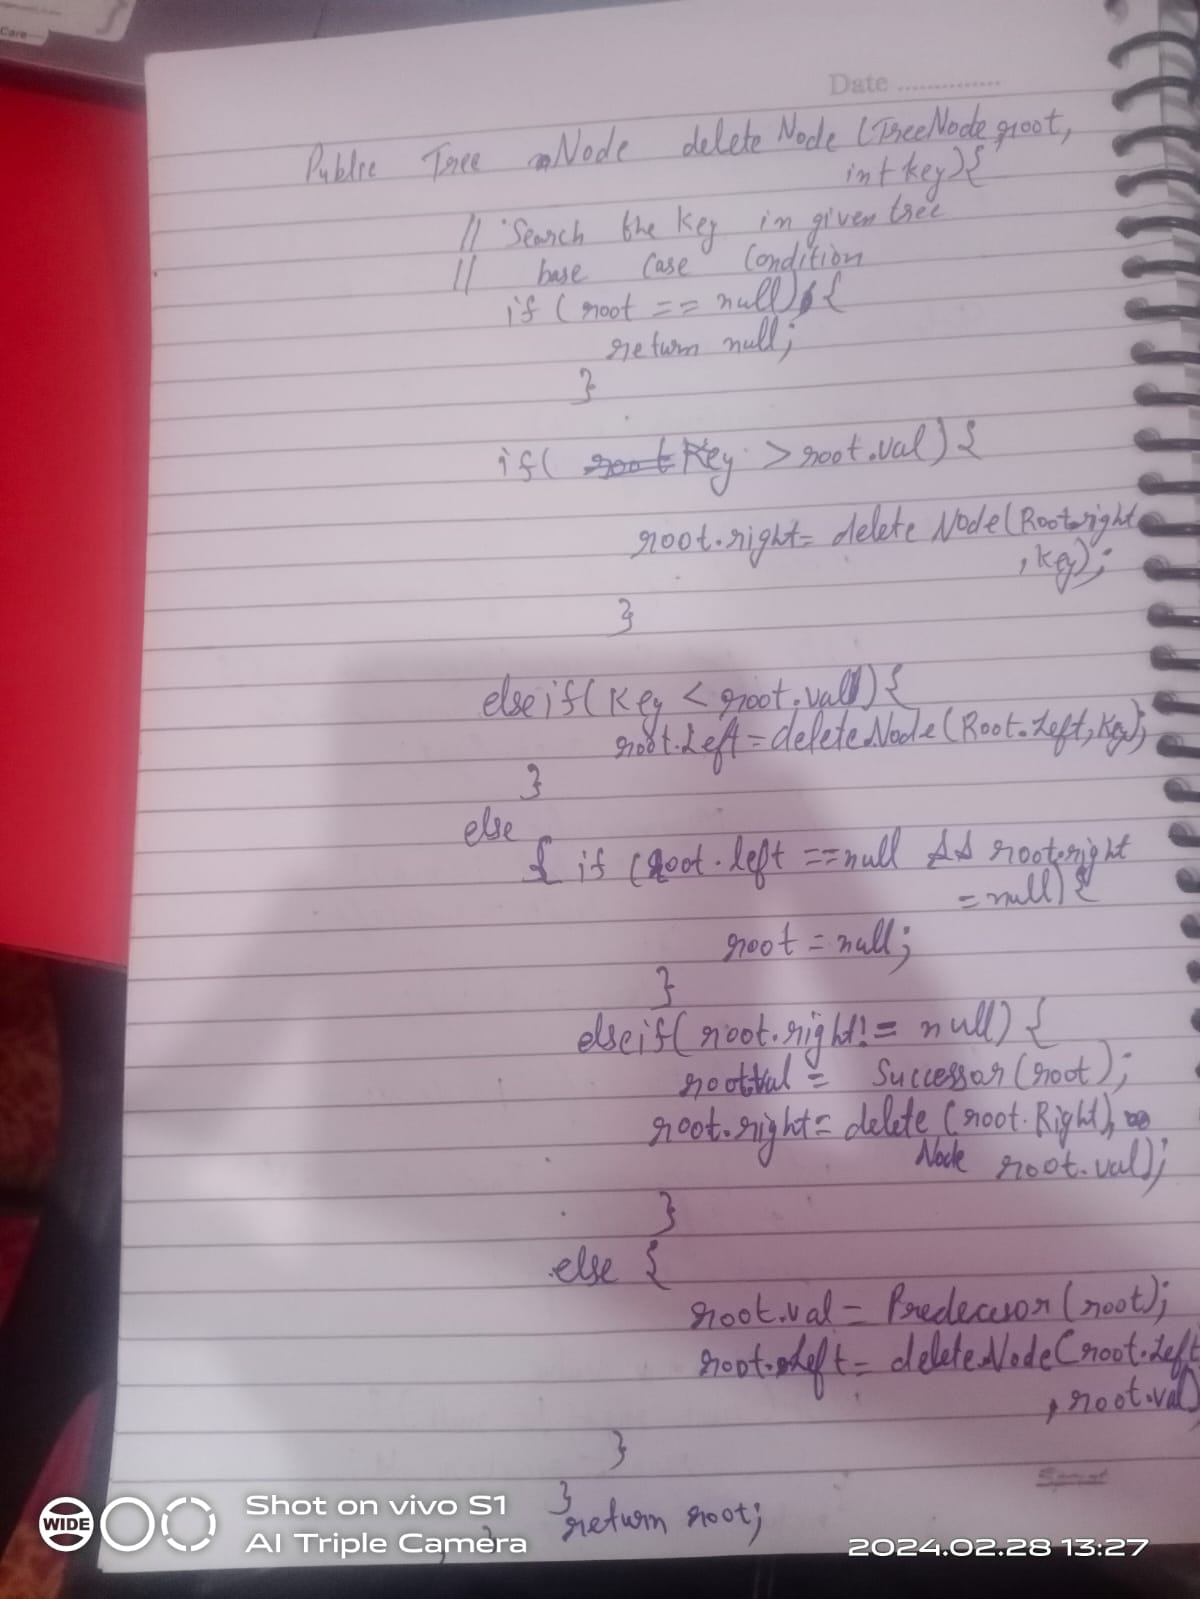 Care
Date ..............
Public Tree Node deleteNode (TreeNode root,
int key){
// Search the key in given tree
// base case Condition
if (root == null) {
return null;
}
if( Key > root.val) {
root.right= delete Node(Root.right
, key);
}
else if( Key < root.val) {
root.Left = deleteNode(Root.Left, Key);
}
else
{ if (Root.left ==null && root.right
= null) {
root = null;
}
else if( root.right != null) {
root.val = Successor (root);
root.right= delete (root.Right),
Node root.val);
}
else {
root.val = Predecesor (root);
root.Left = deleteNode(root.Left
, root.val)
}
}
return root;
}
WIDE
Shot on vivo S1
AI Triple Camera
2024.02.28 13:27